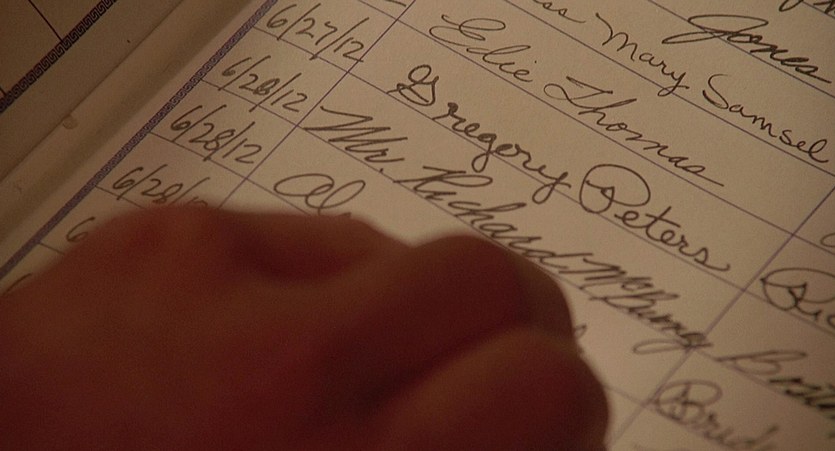 Jones
ss Mary Samsel
6/27/12 Edie Thomas
6/28/12 Gregory Peters
6/28/12 Mr. Richard McBurney
6/28/12 Al
6